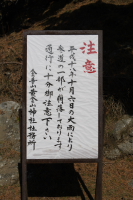 注意
平成十八年十月六日の大雨により
参道の一部が崩落しております
通行に十分御注意下さい
金華山黄金山神社社務所